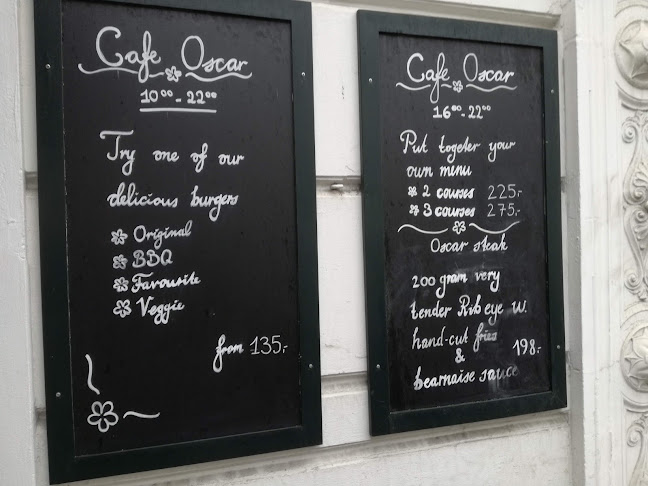 Cafe Oscar
10⁰⁰ - 22⁰⁰
Try one of our
delicious burgers
Original
BBQ
Favourite
Veggie
from 135.-
Cafe Oscar
16⁰⁰ - 22⁰⁰
Put togeter your
own menu
2 courses 225.-
3 courses 275.-
Oscar steak
200 gram very
tender Rib eye w.
hand-cut fries
& 198.-
bearnaise sauce